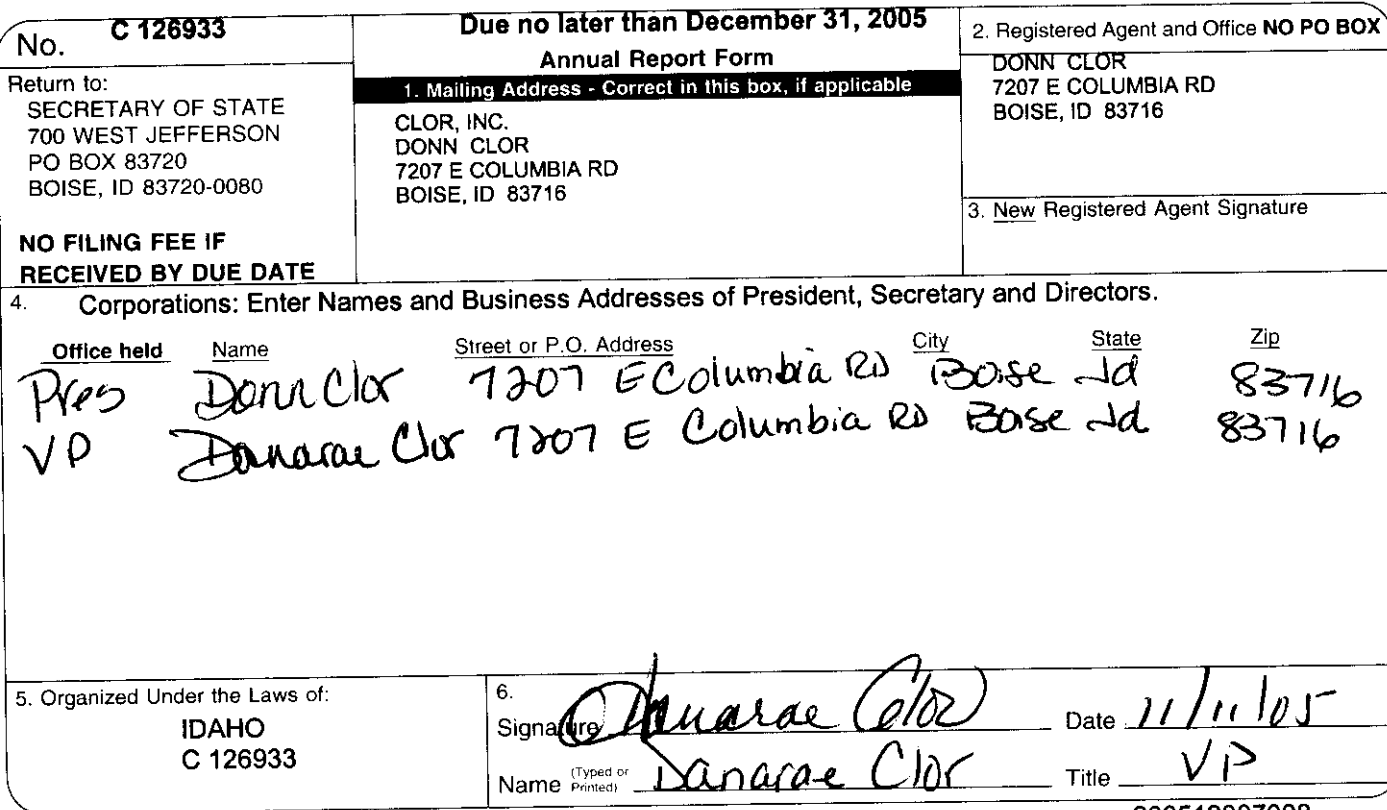 No. C 126933
Return to:
SECRETARY OF STATE
700 WEST JEFFERSON
PO BOX 83720
BOISE, ID 83720-0080
NO FILING FEE IF
RECEIVED BY DUE DATE
Due no later than December 31, 2005
Annual Report Form
1. Mailing Address - Correct in this box, if applicable
CLOR, INC.
DONN CLOR
7207 E COLUMBIA RD
BOISE, ID 83716
2. Registered Agent and Office NO PO BOX
DONN CLOR
7207 E COLUMBIA RD
BOISE, ID 83716
3. New Registered Agent Signature
4. Corporations: Enter Names and Business Addresses of President, Secretary and Directors.
Office held Name Street or P.O. Address City State Zip
Pres Donn Clor 7207 E Columbia RD Boise Id 83716
VP Danarae Clor 7207 E Columbia RD Boise Id 83716
5. Organized Under the Laws of:
IDAHO
C 126933
6.
Signature Danarae Clor Date 11/11/05
Name (Typed or Printed) Danarae Clor Title VP